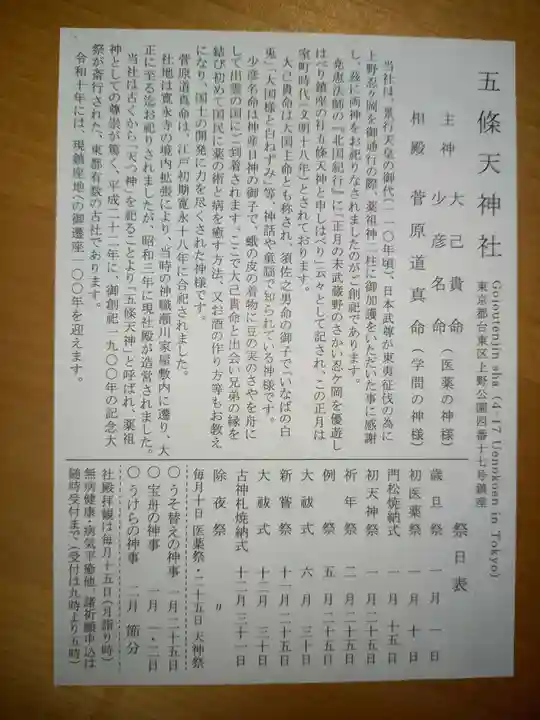 五條天神社
Gojoutenjin sha (4-17 Uenokouen in Tokyo)
東京都台東区上野公園四番十七号鎮座
主神 大己貴命
少彦名命(医薬の神様)
相殿 菅原道真命(学問の神様)
当社は、景行天皇の御代(一一〇年頃)、日本武尊が東夷征伐の為に
上野忍ヶ岡を御通行の際、薬祖神二柱に御加護をいただいた事に感謝
し、茲に両神をお祀りなされましたのがご創祀であります。
堯恵法師の『北国紀行』に「正月の末武蔵野のさかい忍ケ岡に優遊し
はべり鎮座の社五條天神と申しはべり云々として記され、この正月は
室町時代(文明十八年)とされております。
大己貴命は大国主命とも称され、須佐之男命の御子で「いなばの白
兎」「大国様と白ねずみ」等、神話や童謡で知られている神様です。
少彦名命は神産日神の御子で、蛾の皮の着物に豆の実のさやを舟に
して出雲の国にご到着されます。ここで大己貴命と出会い兄弟の縁を
結び初めて国民に薬の術と病を癒す方法、又お酒の作り方等もお教え
になり、国土の開発に力を尽くされた神様です。
菅原道真命は、江戸初期寛永十八年に合祀されました。
社地は寛永寺の境内拡張により、当時の神職瀬川家屋敷内に遷り、大
正に至る迄お祀りされましたが、昭和三年に現社殿が造営されました。
当社は古くから「天つ神」を祀ることより「五條天神」と呼ばれ、薬祖
神としての尊崇が篤く、平成二十二年に、御創祀一九〇〇年の記念大
祭が斎行された、東都有数の古社であります。
令和十年には、現鎮座地への御遷座一〇〇年を迎えます。
祭日表
歳旦祭 一月一日
初医薬祭 一月十日
門松焼納式 一月十五日
初天神祭 一月二十五日
祈年祭 二月二十五日
例祭 五月二十五日
大祓式 六月三十日
新嘗祭 十一月二十五日
大祓式 十二月三十日
古神札焼納式 十二月三十一日
除夜祭 〃
毎月十日 医薬祭・二十五日 天神祭
〇うそ替えの神事 一月二十五日
〇宝舟の神事 一月一・二日
〇うけらの神事 二月節分
社殿拝観は毎月十五日(月詣り時)
無病健康・病気平癒他 諸祈願申込は
随時受付まで(受付は九時より五時)